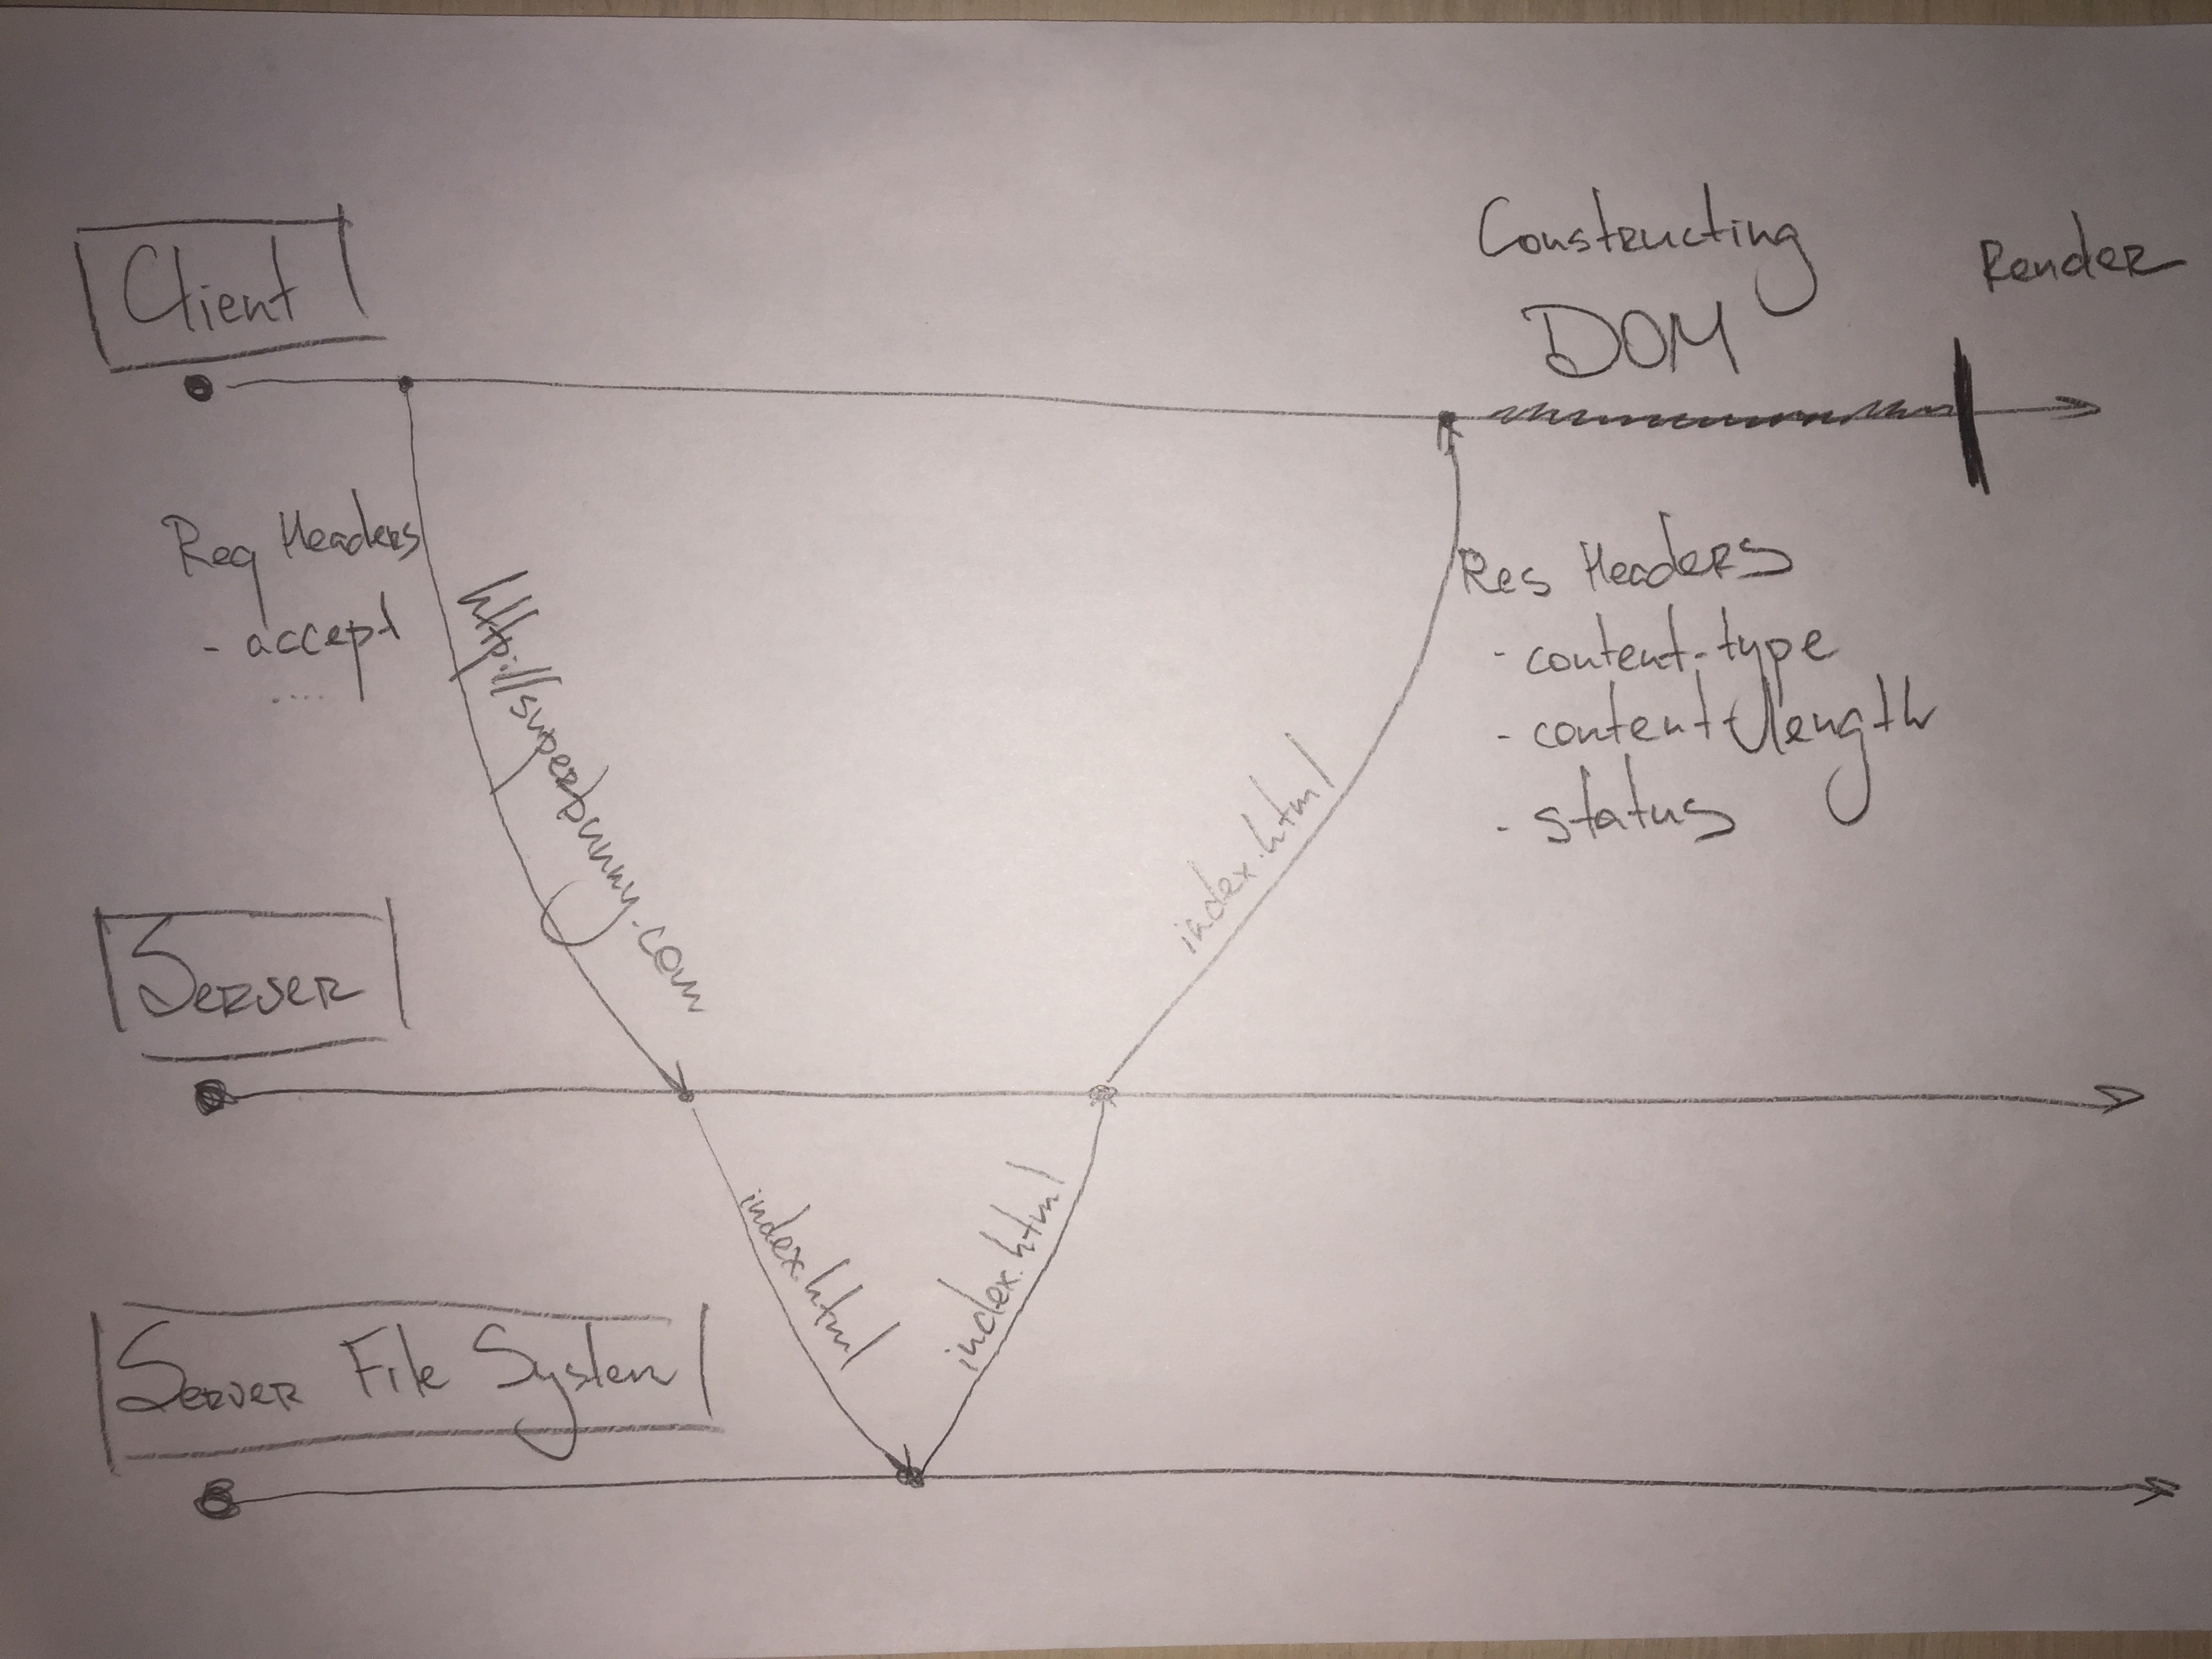 Client
Constructing
DOM
Render
Req Headers
- accept
....
http://superbunny.com
Res Headers
- content-type
- content-length
- status
index.html
Server
index.html
index.html
Server File System